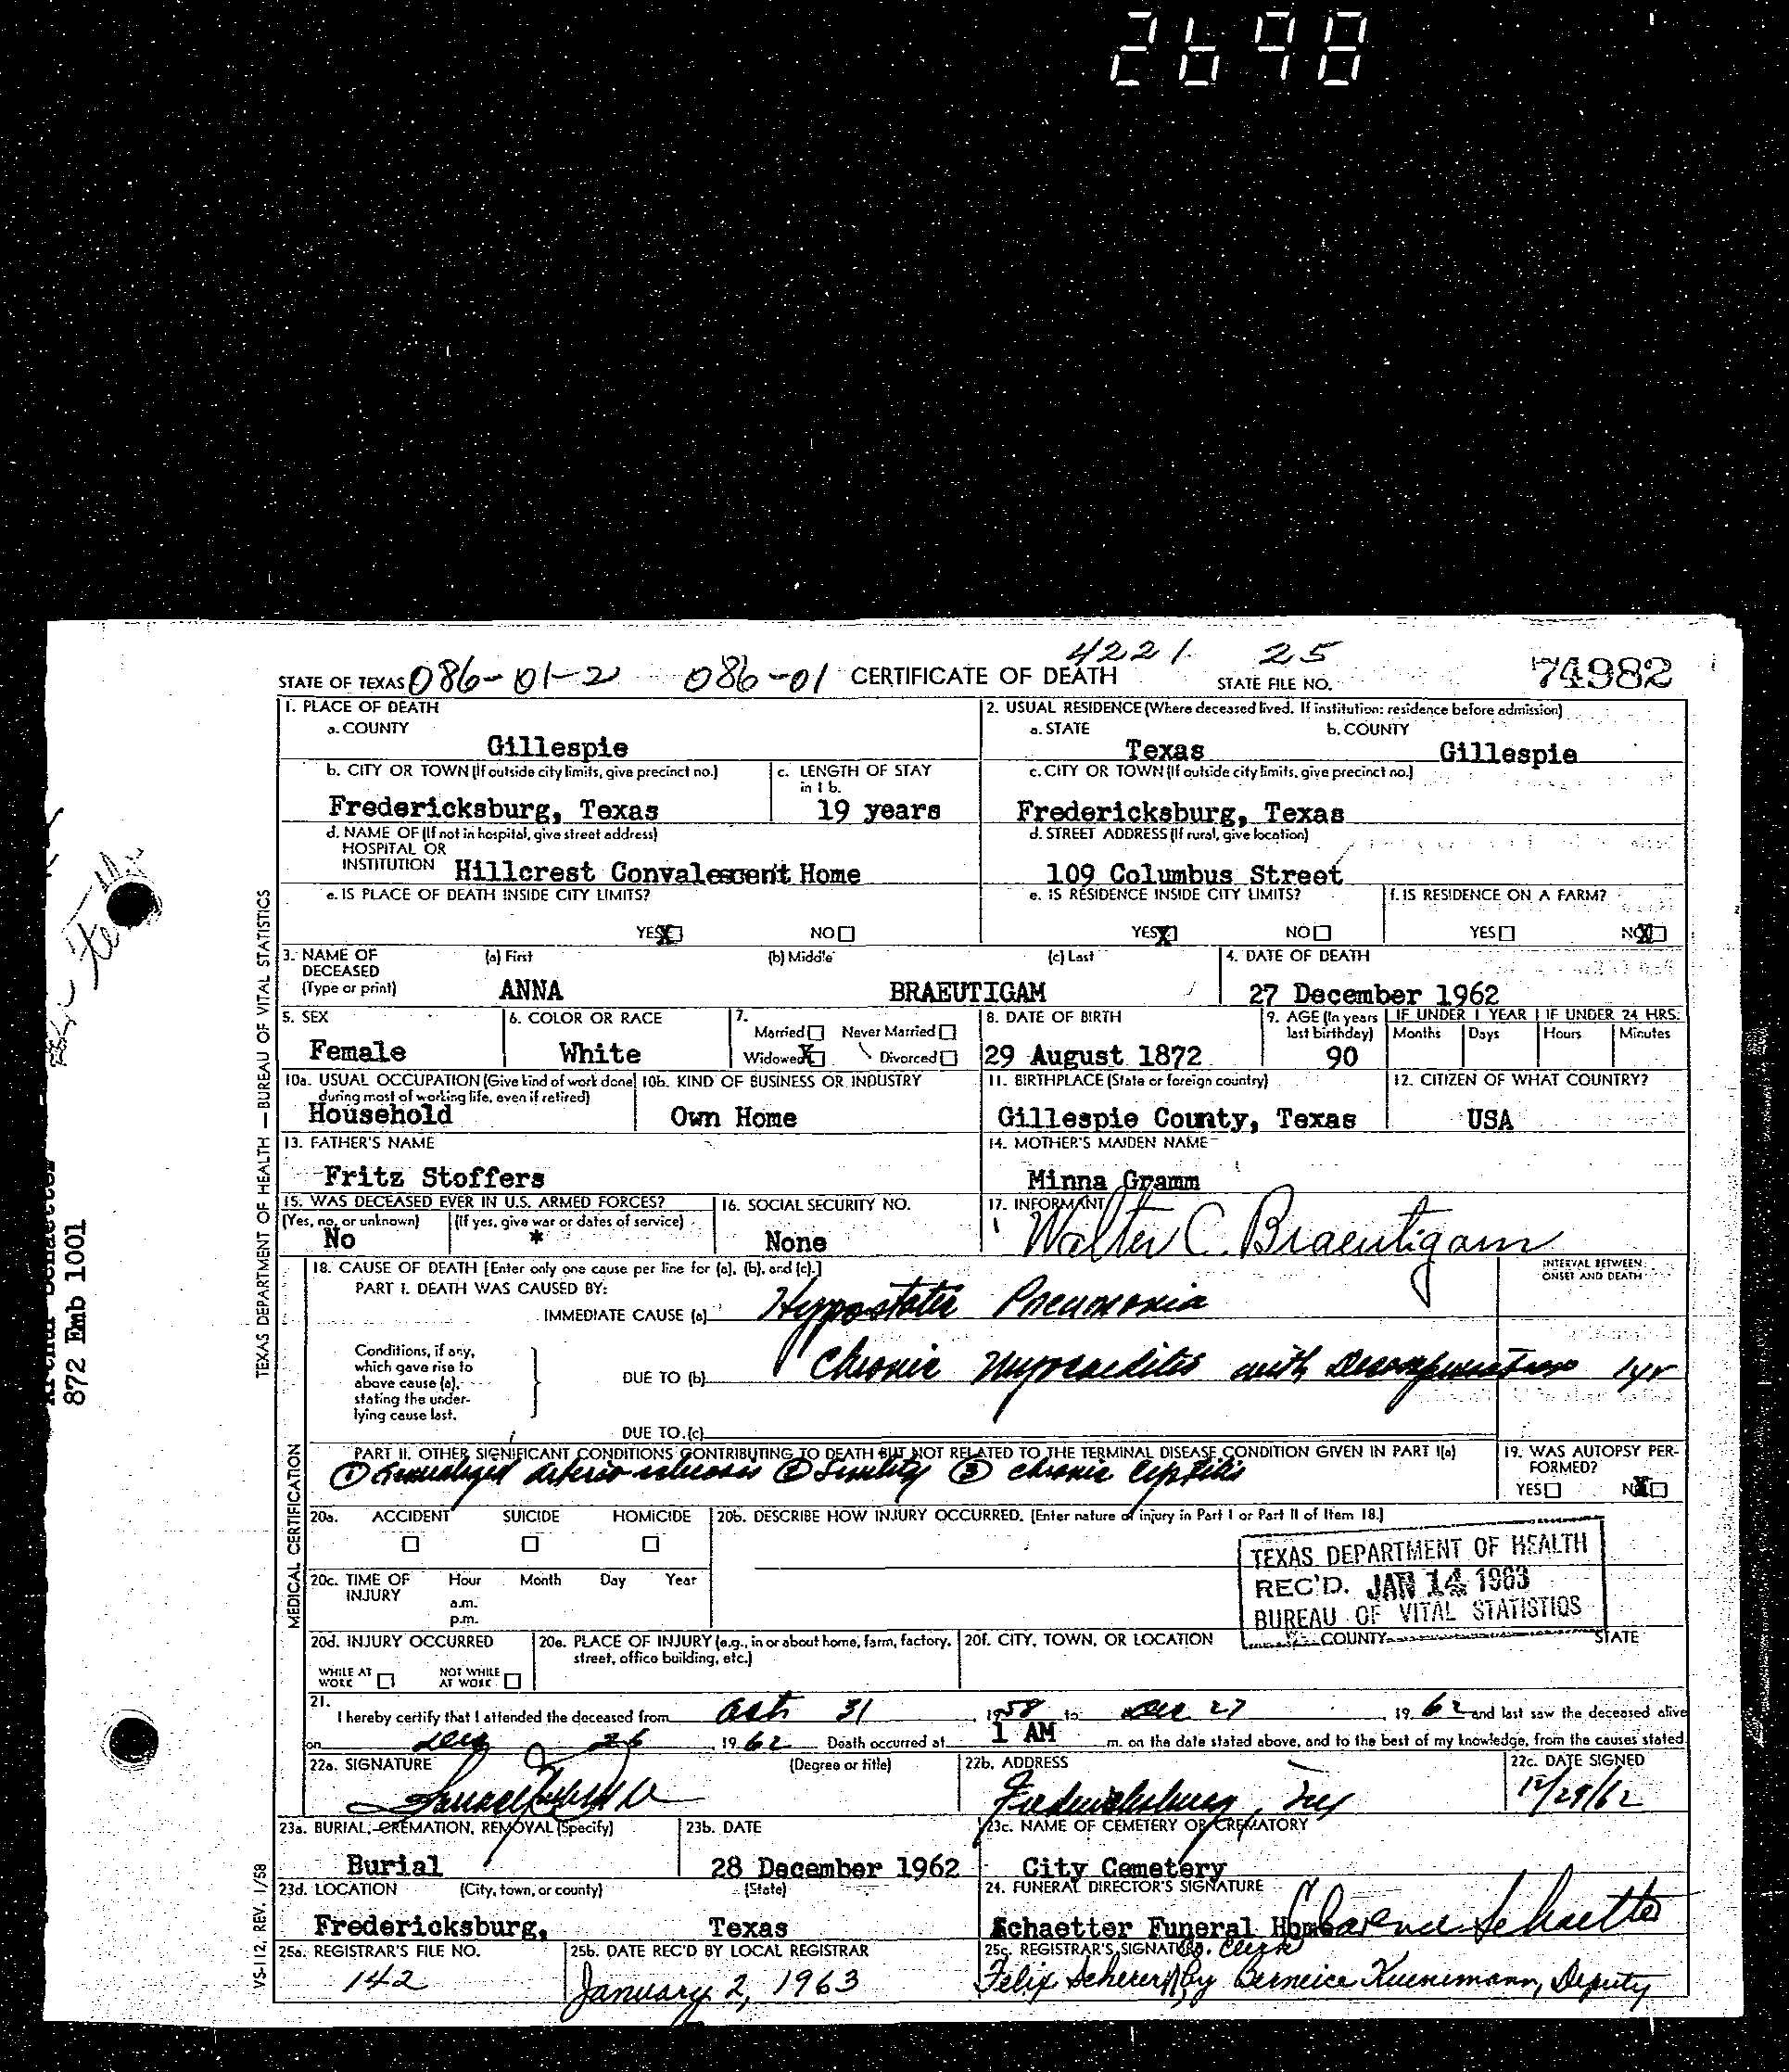 2698
4221 25
STATE OF TEXAS 086-01-2 086-01 CERTIFICATE OF DEATH STATE FILE NO. 74982
1. PLACE OF DEATH 2. USUAL RESIDENCE (Where deceased lived. If institution: residence before admission)
a. COUNTY a. STATE b. COUNTY
Gillespie Texas Gillespie
b. CITY OR TOWN (If outside city limits, give precinct no.) c. LENGTH OF STAY in 1 b. c. CITY OR TOWN (If outside city limits, give precinct no.)
Fredericksburg, Texas 19 years Fredericksburg, Texas
d. NAME OF (If not in hospital, give street address) d. STREET ADDRESS (If rural, give location)
HOSPITAL OR
INSTITUTION Hillcrest Convalescent Home 109 Columbus Street
e. IS PLACE OF DEATH INSIDE CITY LIMITS? e. IS RESIDENCE INSIDE CITY LIMITS? f. IS RESIDENCE ON A FARM?
YES X NO YES X NO YES NO X
3. NAME OF DECEASED (Type or print) (a) First (b) Middle (c) Last 4. DATE OF DEATH
ANNA BRAEUTIGAM 27 December 1962
5. SEX 6. COLOR OR RACE 7. Married Never Married 8. DATE OF BIRTH 9. AGE (In years last birthday) IF UNDER 1 YEAR IF UNDER 24 HRS.
Widowed X Divorced Months Days Hours Minutes
Female White 29 August 1872 90
10a. USUAL OCCUPATION (Give kind of work done during most of working life, even if retired) 10b. KIND OF BUSINESS OR INDUSTRY 11. BIRTHPLACE (State or foreign country) 12. CITIZEN OF WHAT COUNTRY?
Household Own Home Gillespie County, Texas USA
13. FATHER'S NAME 14. MOTHER'S MAIDEN NAME
Fritz Stoffers Minna Gramm
15. WAS DECEASED EVER IN U.S. ARMED FORCES? 16. SOCIAL SECURITY NO. 17. INFORMANT
(Yes, no, or unknown) (If yes, give war or dates of service)
No * None Walter C. Braeutigam
18. CAUSE OF DEATH [Enter only one cause per line for (a), (b), and (c).] INTERVAL BETWEEN ONSET AND DEATH
PART I. DEATH WAS CAUSED BY:
IMMEDIATE CAUSE (a) Hypostatic Pneumonia
Conditions, if any, which gave rise to above cause (a), stating the underlying cause last.
DUE TO (b) Chronic Myocarditis with Decompensation 1yr
DUE TO (c)
PART II. OTHER SIGNIFICANT CONDITIONS CONTRIBUTING TO DEATH BUT NOT RELATED TO THE TERMINAL DISEASE CONDITION GIVEN IN PART I(a) 19. WAS AUTOPSY PERFORMED?
① Generalized arterio sclerosis ② Senility ③ chronic YES NO X
20a. ACCIDENT SUICIDE HOMICIDE 20b. DESCRIBE HOW INJURY OCCURRED. (Enter nature of injury in Part I or Part II of Item 18.)
TEXAS DEPARTMENT OF HEALTH
REC'D. JAN 14 1963
BUREAU OF VITAL STATISTICS
20c. TIME OF INJURY Hour Month Day Year
a.m.
p.m.
20d. INJURY OCCURRED 20e. PLACE OF INJURY (e.g., in or about home, farm, factory, street, office building, etc.) 20f. CITY, TOWN, OR LOCATION COUNTY STATE
WHILE AT WORK NOT WHILE AT WORK
21. I hereby certify that I attended the deceased from Oct 31 1958 to Dec 27, 1962 and last saw the deceased alive
on Dec 26, 1962. Death occurred at 1 AM m. on the date stated above, and to the best of my knowledge, from the causes stated
22a. SIGNATURE (Degree or title) 22b. ADDRESS 22c. DATE SIGNED
Fredericksburg, Tex 12/28/62
23a. BURIAL, CREMATION, REMOVAL (Specify) 23b. DATE 23c. NAME OF CEMETERY OR CREMATORY
Burial 28 December 1962 City Cemetery
23d. LOCATION (City, town, or county) (State) 24. FUNERAL DIRECTOR'S SIGNATURE
Fredericksburg, Texas Schaetter Funeral Home Clarence Schaetter
25a. REGISTRAR'S FILE NO. 25b. DATE REC'D BY LOCAL REGISTRAR 25c. REGISTRAR'S SIGNATURE Co. Clerk
142 January 2, 1963 Felix Scherer, By Berneice Kuenemann, Deputy
TEXAS DEPARTMENT OF HEALTH — BUREAU OF VITAL STATISTICS
MEDICAL CERTIFICATION
VS-112, REV. 1/58
872 Emb 1001